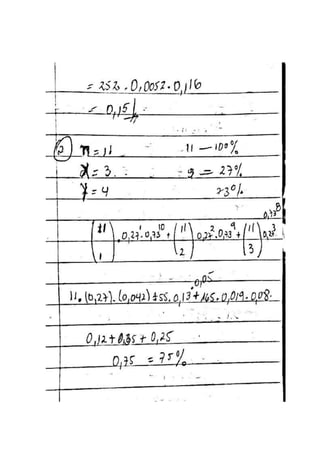 = 252 . 0,0052 . 0,116
= 0,15
2 n = 11 11 — 100%
x = 3 3 = 27%
y = 4 73%
(11 1) . 0,27¹ . 0,73¹⁰ + (11 2) 0,27² . 0,73⁹ + (11 3) 0,27³ 0,73⁸
11 . (0,27) . (0,042) + 55 . 0,13 + 165 . 0,019 . 0,08
. 0,05
0,12 + 0,35 + 0,25
0,75 = 75%